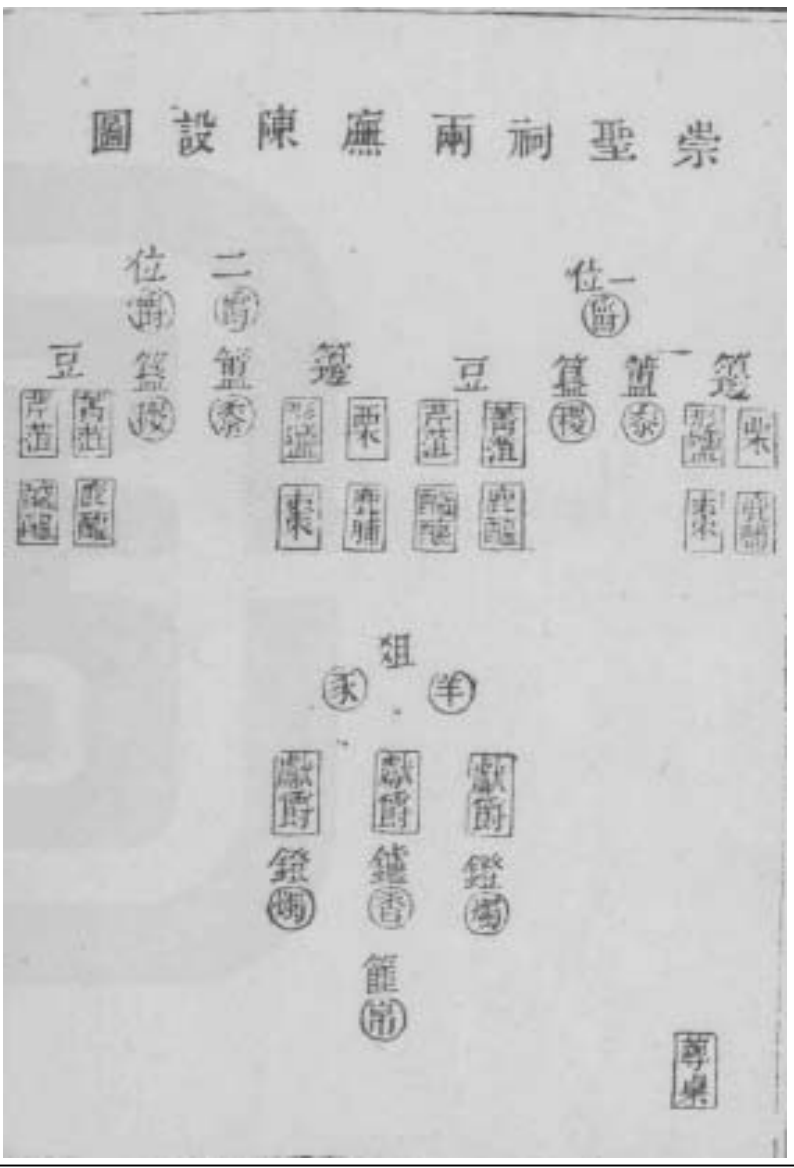 崇聖祠兩廡陳設圖
一位
爵
籩 簠 簋 豆
栗 形鹽 黍 稷 菁菹 芹菹
鹿脯 棗 鹿醢 醓醢
二位
爵 爵
籩 簠 簋 豆
栗 形鹽 黍 稷 菁菹 芹菹
鹿脯 棗 鹿醢 醓醢
俎
羊 豕
獻爵 獻爵 獻爵
鐙 鑪 鐙
燭 香 燭
篚
帛
尊桌